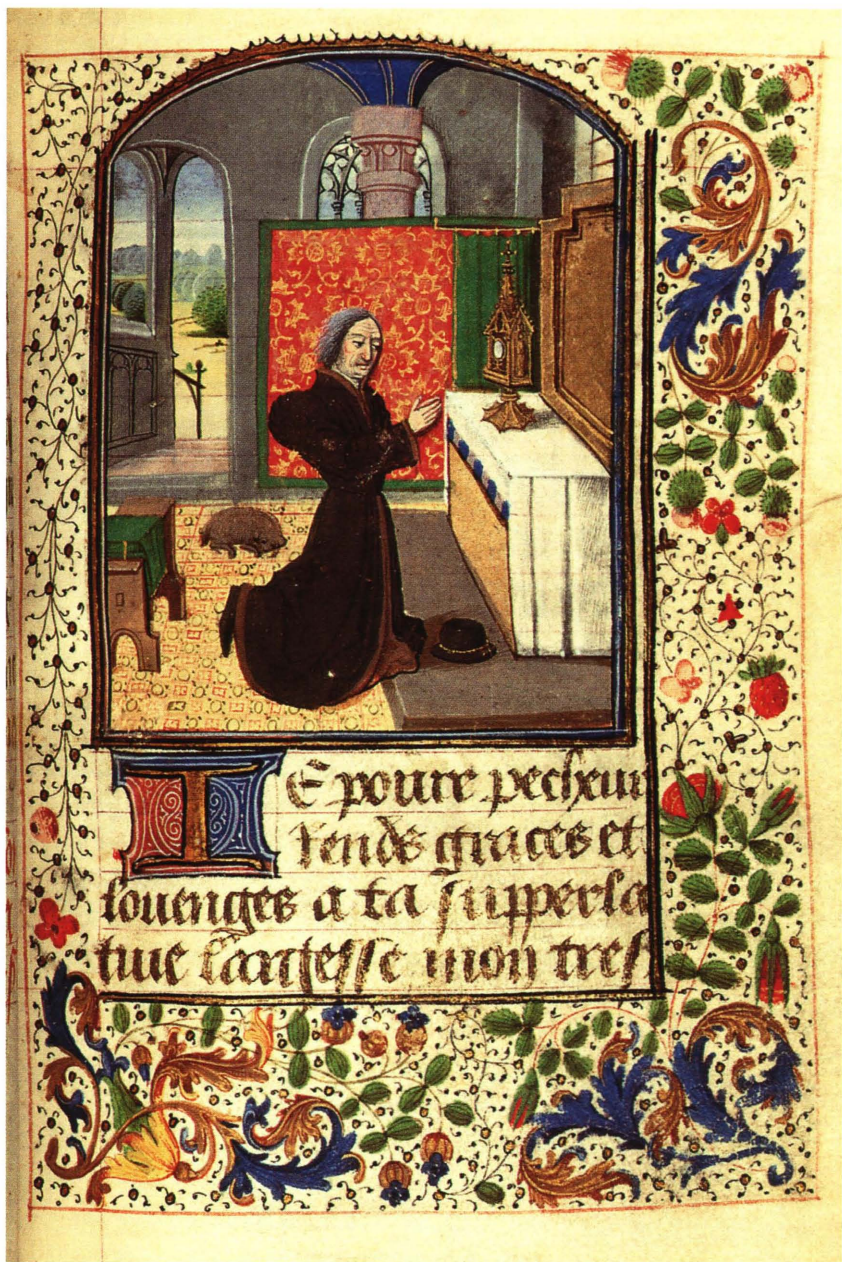 IE poure pecheur
rends graces et
louenges a ta supperla
tiue largesse mon tres